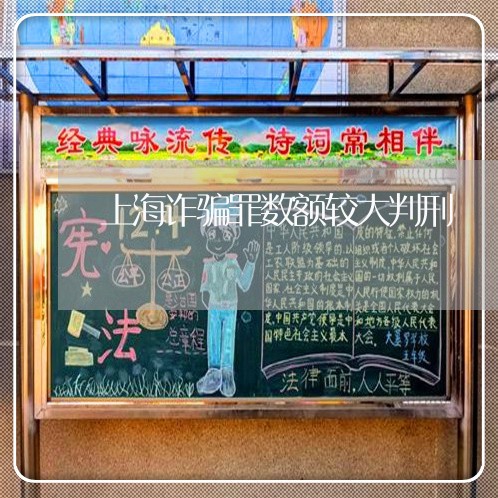 经典咏流传 诗词常相伴
上海诈骗罪数额较大判刑
宪
法
12.4
公平
公正
总章程
中华人民共和国
是工人阶级领导的,以
工农联盟为基础的
人民民主专政的社会主义
国家,社会主义制度是中
华人民共和国的根本制
度,中国共产党领导是中
国特色社会主义最本
质的特征,禁止任何
组织或者个人破坏社会
主义制度,中华人民共和
国的一切权利属于人民,
人民行使国家权力的机
关是全国人民代表大会
和地方各级人民代表
大会。
五年级
法律面前,人人平等